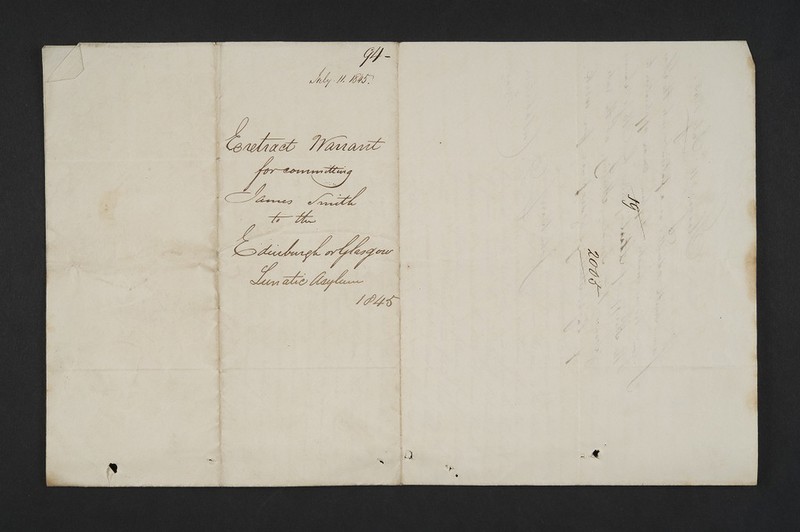 94-
July 11. 1845.
Extract Warrant
for committing
James Smith
to the
Edinburgh or Glasgow
Lunatic Asylum
1845
19
2005